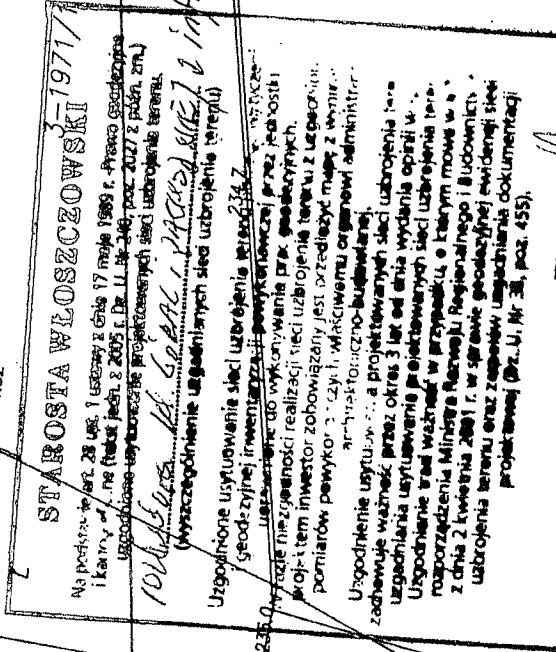 3-1971/1
STAROSTA WŁOSZCZOWSKI
Na podstawie art. 28 ust. 1 ustawy z dnia 17 maja 1989 r. Prawo geodezyjne
i kartog (tekst jedn. z 2005 r. Dz. U. Nr 240, poz. 2027 z późn. zm.)
uzgodniono usytuowanie projektowanych sieci uzbrojenia terenu
(wyszczególnienie uzgadnianych sieci uzbrojenia terenu)
234.7
Uzgodnione usytuowanie sieci uzbrojenia terenu
geodezyjnej inwentaryzacji powykonawczej przez jednostki
do wykonywania prac geodezyjnych.
niezgodności realizacji sieci uzbrojenia terenu z uzgodnion
projektem inwestor zobowiązany jest przedłożyć mapę z wynik
pomiarów powykon właściwemu organowi administr
architektoniczno-budowlanej.
Uzgodnienie usytuow a projektowanych sieci uzbrojenia tere
zachowuje ważność przez okres 3 lat od dnia wydania opinii w
uzgadniania usytuowania projektowanych sieci uzbrojenia tere
Uzgodnienie traci ważność w przypadku, o którym mowa w
rozporządzenia Ministra Rozwoju Regionalnego i Budownictw
z dnia 2 kwietnia 2001 r. w sprawie geodezyjnej ewidencji sieci
uzbrojenia terenu oraz zespołów uzgadniania dokumentacji
projektowej (Dz. U. Nr 38, poz. 455).
235.0